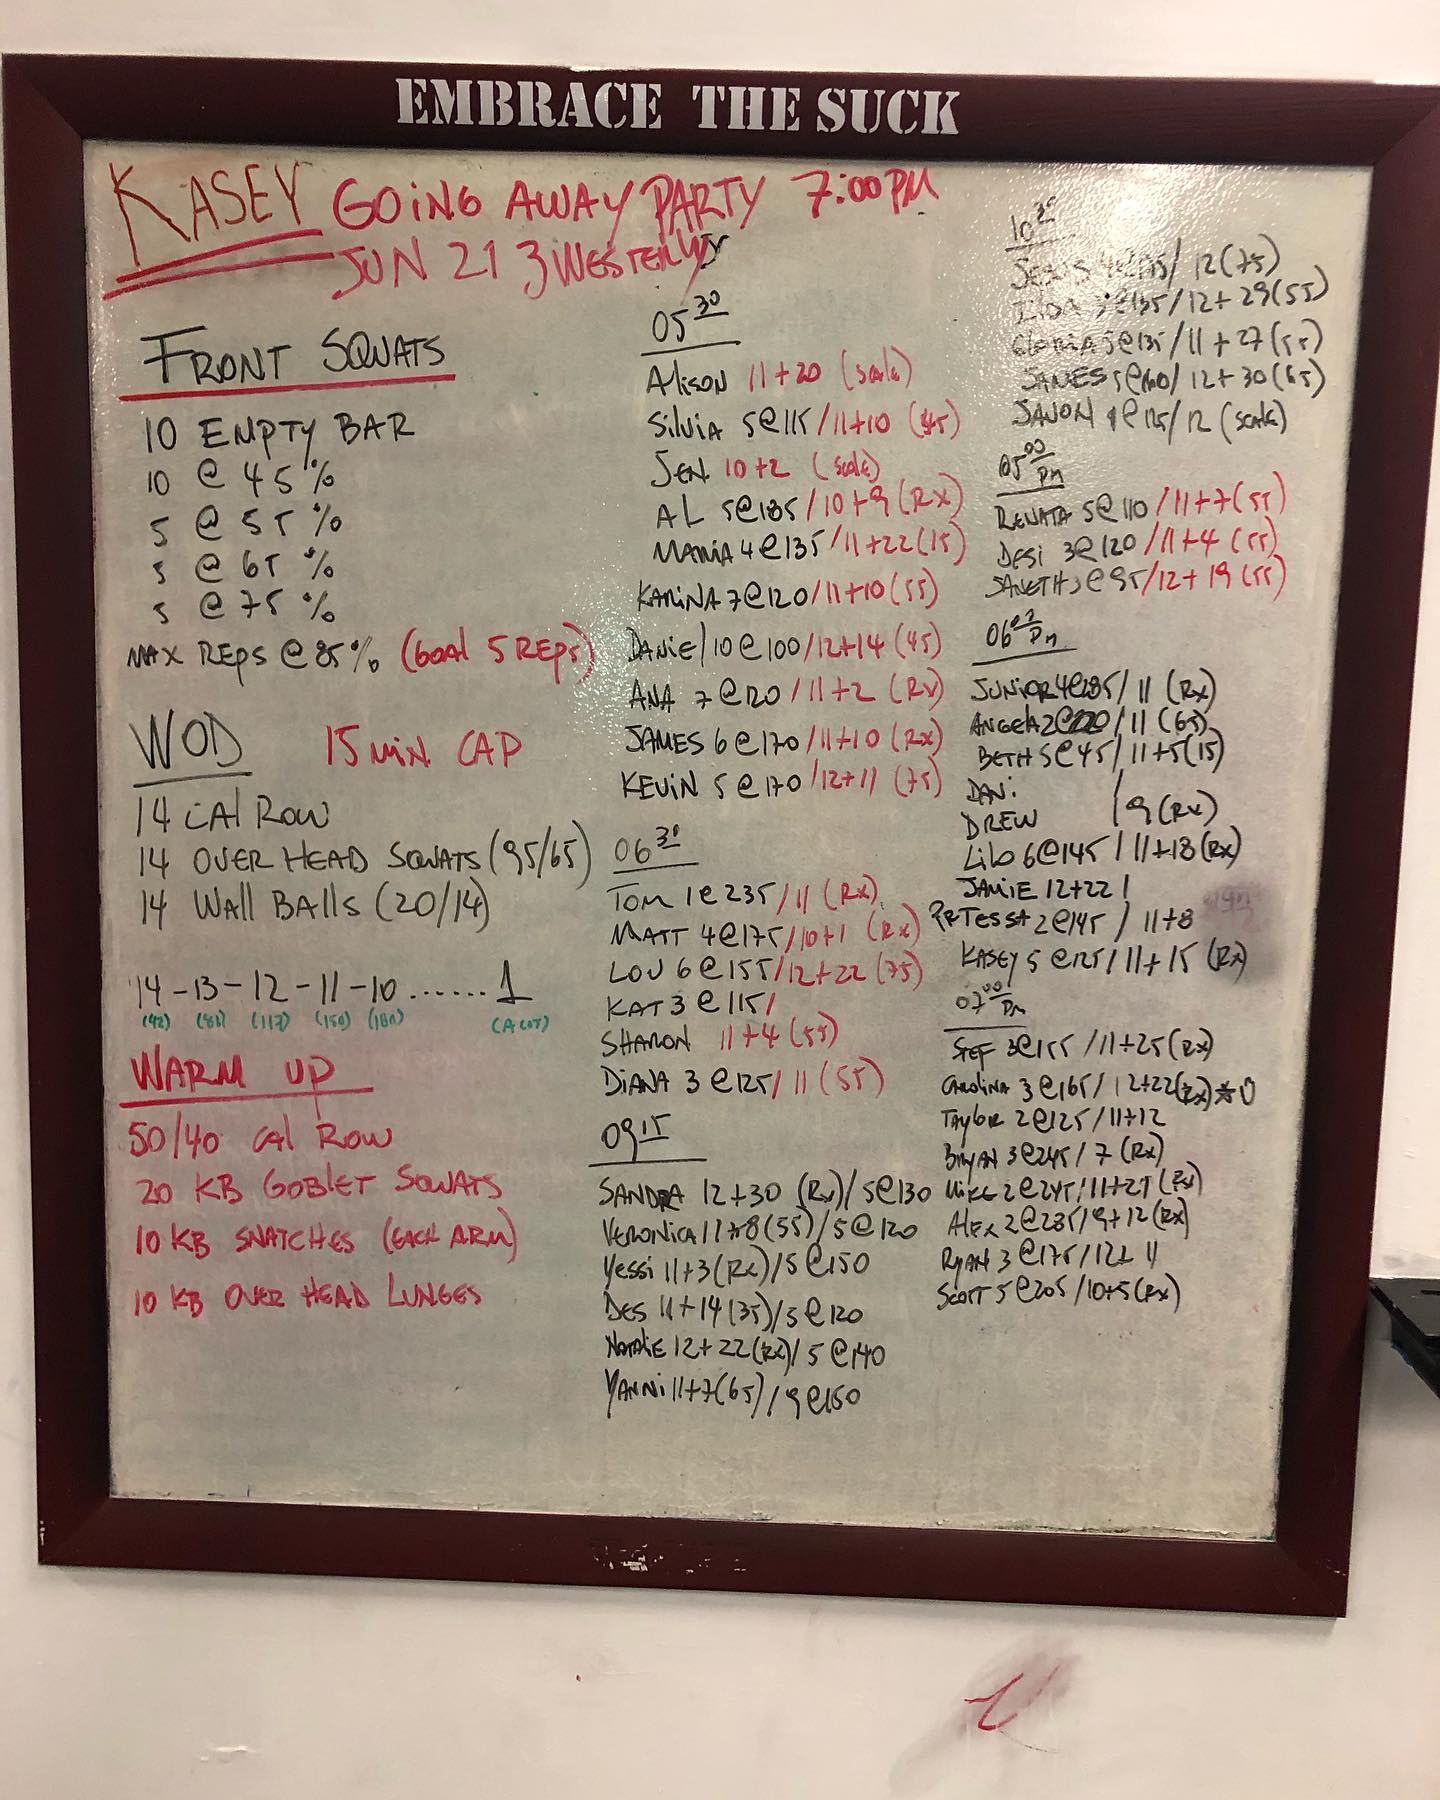 EMBRACE THE SUCK
KASEY GOING AWAY PARTY 7:00PM
JUN 21 3 WESTERLY
FRONT SQUATS
10 EMPTY BAR
10 @ 45%
5 @ 55%
5 @ 65%
5 @ 75%
MAX REPS @ 85% (GOAL 5 REPS)
WOD 15 MIN CAP
14 CAL ROW
14 OVER HEAD SQUATS (95/65)
14 WALL BALLS (20/14)
14-13-12-11-10......1
(42) (81) (117) (150) (180) (A LOT)
WARM UP
50/40 CAL ROW
20 KB GOBLET SQUATS
10 KB SNATCHES (EACH ARM)
10 KB OVER HEAD LUNGES
05 30
ALISON 11+20 (scale)
SILVIA 5@115/11+10
JEN 10+2 (scale)
AL 5@185/10+9 (Rx)
MARIA 4@135/11+22 (15)
KARINA 7@120/11+10 (55)
DANIEL 10@100/12+14 (45)
ANA 7@120/11+2 (Rx)
JAMES 6@170/11+10 (Rx)
KEVIN 5@170/12+11 (75)
06 30
TOM 1@235/11 (Rx)
MATT 4@175/10+1 (Rx)
LOU 6@155/12+22 (75)
KAT 3@115/
SHARON 11+4 (55)
DIANA 3@125/11 (55)
09 15
SANDRA 12+30 (Rx)/5@130
VERONICA 11+8 (55)/5@120
YESSI 11+3 (Rx)/5@150
DES 11+14 (35)/5@120
NATALIE 12+22 (Rx)/5@140
YANNI 11+7 (65)/9@150
10 30
12 (75)
@135/12+29 (55)
GLORIA 5@135/11+27 (55)
JAMES 5@160/12+30 (65)
(SCALE)
05 00 PM
RENATA 5@110/11+7 (55)
DESI 3@120/11+4 (55)
JANETH @95/12+19 (55)
06 00 PM
JUNIOR 4@185/11 (Rx)
ANGELA 2@220/11 (65)
BETH 5@45/11+5 (15)
DANI
DREW /9 (Rx)
LILO 6@145/11+18 (Rx)
JAMIE 12+22/
PR TESSA 2@145/11+8
KASEY 5@125/11+15 (Rx)
07 00 PM
STEF 3@155/11+25 (Rx)
CAROLINA 3@165/12+22 (Rx)
TAYLOR 2@125/11+12
BRYAN 3@245/7 (Rx)
MIKE 2@245/11+27 (Rx)
ALEX 2@235/9+12 (Rx)
RYAN 3@175/12+11
SCOTT 5@205/10+5 (Rx)